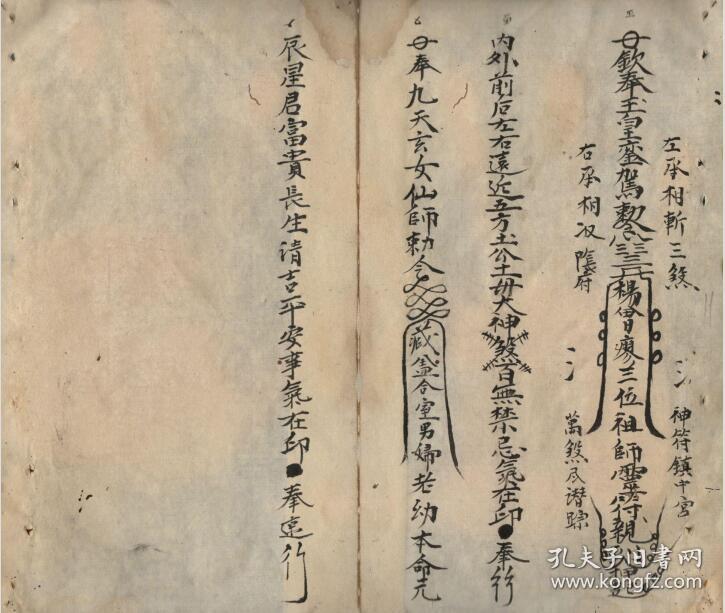 左丞相斬三煞
神符鎮中宮
奉玉皇鑾駕敕令
楊曾廖三位祖師靈符親
右丞相收陰府
萬煞尽潛踪
内外前后左右遠近五方土公土母大神煞百無禁忌氣在印●奉行
奉九天玄女仙師勅令
藏盖合室男婦老幼本命元
辰星君富貴長生清吉平安寧氣在印●奉遠行
孔夫子旧書网
www.kongfz.com